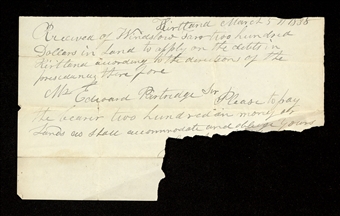 Kirtland March 5th 1838
Received of Windslow two hundred
Dollars in Land to apply on the debts in
Kirtland according to the directions of the
presidency therefore
Mr Edward Partridge Sir Please to pay
the bearer two hundred in money or
Lands as shall accommodate and oblige yours